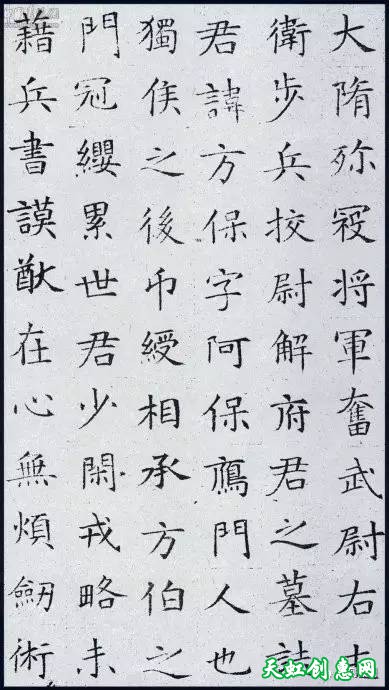 大隋殄寇将軍奮武尉右
衛步兵挍尉解府君之墓誌
君諱方保字阿保鴈門人也
獨侯之後印綬相承方伯之
門冠纓累世君少閑戎略未
藉兵書謨猷在心無煩劒術
天虹创意网